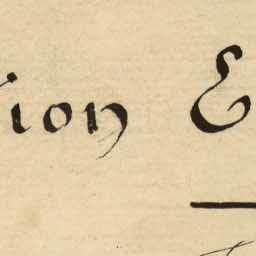 ion E